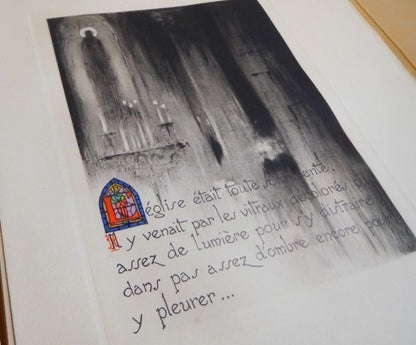 L'église était toute
Il y venait par les vitraux décolorés
assez de lumière pour s'y distraire
dans pas assez d'ombre encore pour
y pleurer...